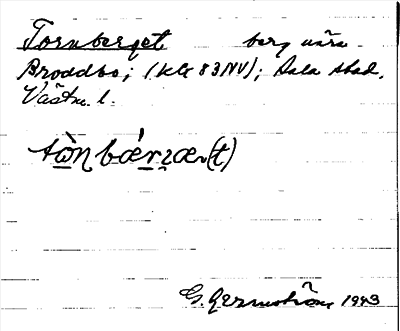 Tornberget berg nära
Broddbo; (KG 83 NV); Sala stad,
Västm. l.
tὼn bǽrɀær(t)
G. Germström 1943